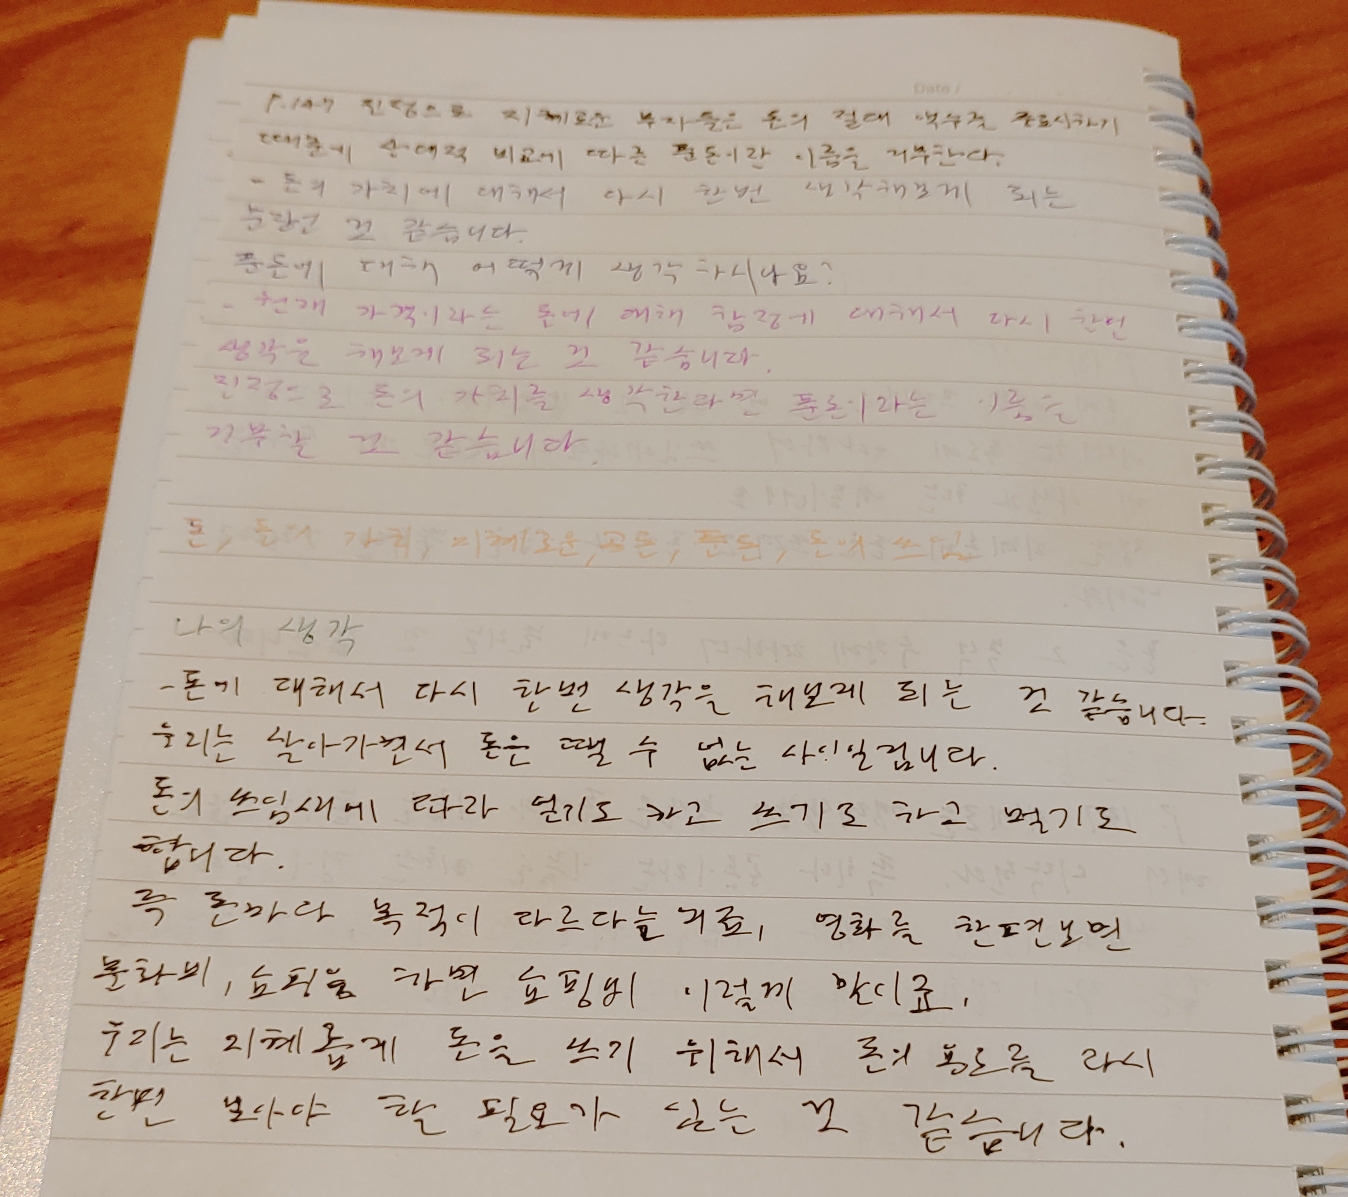 Date /
P.147 진정으로 지혜로운 부자들은 돈의 절대 액수를 중요시하기
때문에 상대적 비교에 따른 푼돈이란 이름을 거부한다.
- 돈의 가치에 대해서 다시 한번 생각해보게 되는
것 같습니다.
푼돈에 대해 어떻게 생각하시나요?
- 현재 가격이라는 돈에 대해 함정에 대해서 다시 한번
생각을 해보게 되는 것 같습니다.
진정으로 돈의 가치를 생각한다면 푼돈이라는 이름을
거부할 것 같습니다.
돈, 돈의 가치, 지혜로운, 푼돈, 돈에 쓰임
나의 생각
-돈에 대해서 다시 한번 생각을 해보게 되는 것 같습니다.
우리는 살아가면서 돈은 땔 수 없는 사이일겁니다.
돈의 쓰임새에 따라 얻기도 하고 쓰기도 하고 벌기도
합니다.
즉 돈마다 목적이 다르다는거죠, 영화를 한편보면
문화비, 쇼핑을 하면 쇼핑비 이렇게 말이죠.
우리는 지혜롭게 돈을 쓰기 위해서 돈의 용도를 다시
한번 보아야 할 필요가 있는 것 같습니다.